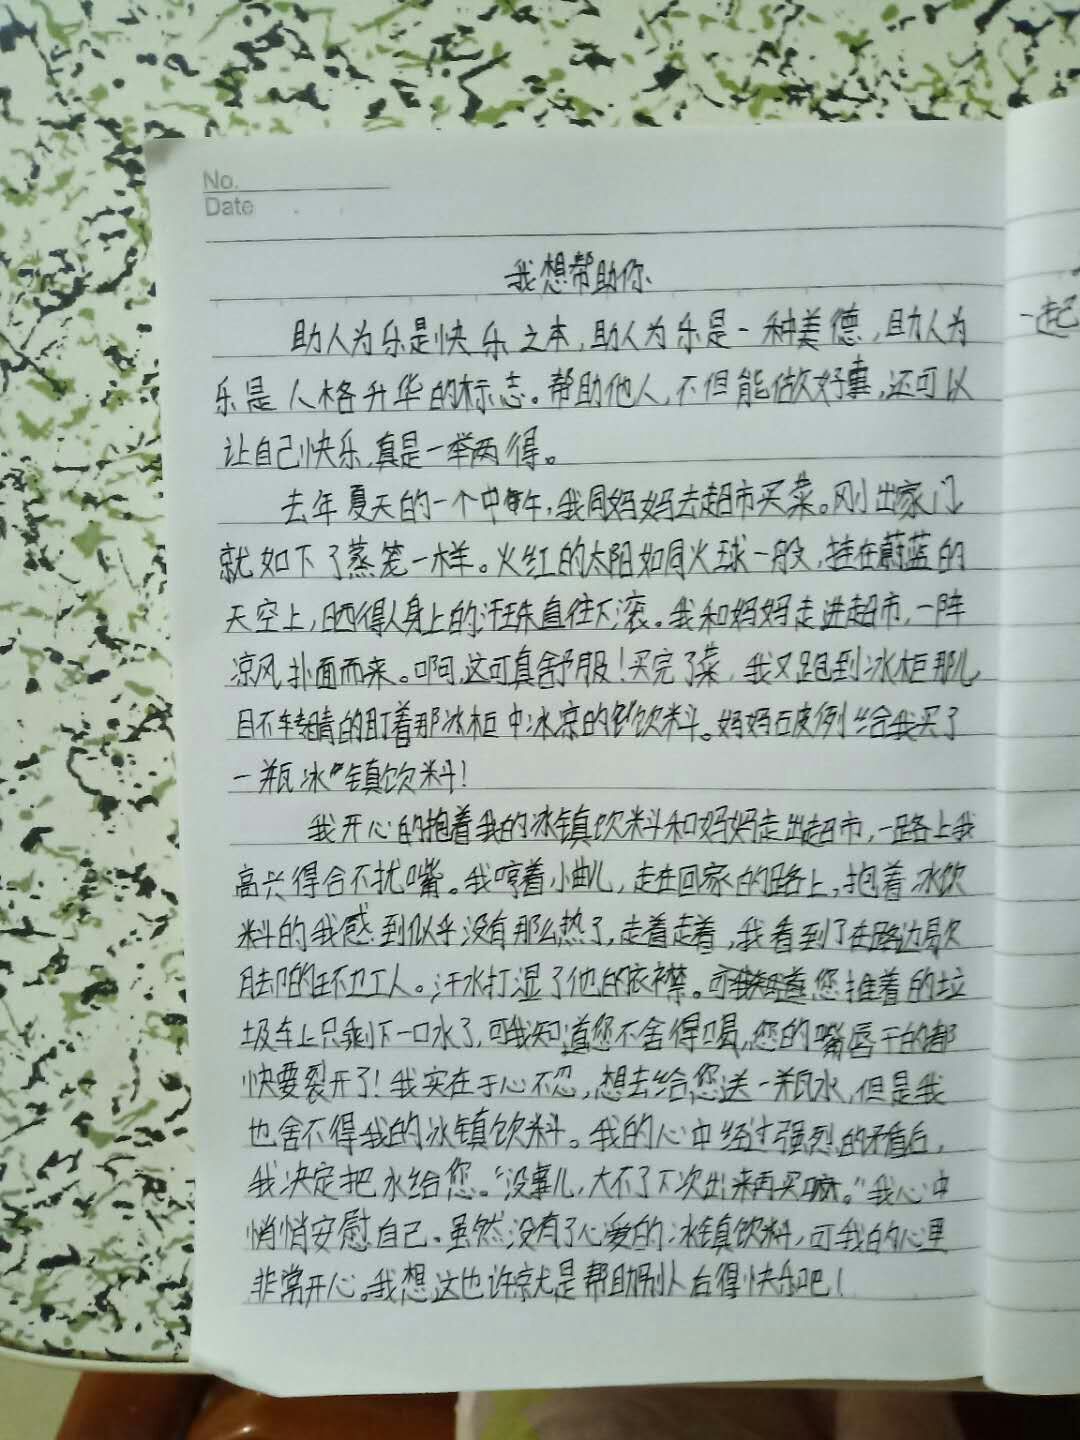 No.
Date
我想帮助你
助人为乐是快乐之本,助人为乐是一种美德,助人为
乐是人格升华的标志。帮助他人,不但能做好事,还可以
让自己快乐,真是一举两得。
去年夏天的一个中午,我同妈妈去超市买菜。刚出家门
就如下了蒸笼一样。火红的太阳如同火球一般,挂在蔚蓝的
天空上,晒得人身上的汗珠直往下滚。我和妈妈走进超市,一阵
凉风扑面而来。啊,这可真舒服!买完了菜,我又跑到冰柜那儿
目不转睛的盯着那冰柜中冰凉的饮料。妈妈破例给我买了
一瓶冰镇饮料!
我开心的抱着我的冰镇饮料和妈妈走出超市,一路上我
高兴得合不拢嘴。我哼着小曲儿,走在回家的路上,抱着冰饮
料的我感到似乎没有那么热了,走着走着,我看到了在路边歇
脚的环卫工人。汗水打湿了他的衣襟。可我知道您推着的垃
圾车上只剩下一口水了,可我知道您不舍得喝,您的嘴唇干的都
快要裂开了!我实在于心不忍,想去给您送一瓶水,但是我
也舍不得我的冰镇饮料。我的心中经过强烈的矛盾后,
我决定把水给您。“没事儿,大不了下次出来再买嘛。”我心中
悄悄安慰自己。虽然没有了心爱的冰镇饮料,可我的心里
非常开心。我想这也许就是帮助别人后得快乐吧!
一起